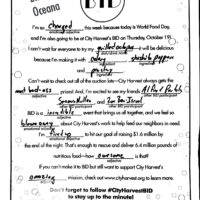 Oceana
BID
I'm so charged this week because today is World Food Day,
and I'm also going to be at City Harvest's BID on Thursday, October 19!
I can't wait for everyone to try my grilled octopus—it will be delicious
because I'm making it with celery
and parsley
Can't wait to check out all of the auction lots—City Harvest always gets the
most bad-ass prizes! And, I'm excited to see my friends
and
BID is a incredible event that brings us all together, and I feel
blown away about City Harvest's work to help feed our neighbors in need.
I'm to hit our goal of raising $1.6 million by
the end of the night. That's enough to rescue and deliver 6.4 million pounds of
nutritious food—how awesome is that!
If you can't make it to BID but still want to support City Harvest's
amazing mission, check out www.cityharvest.org to learn more.
Don't forget to follow #CityHarvestBID
to stay up to the minute!